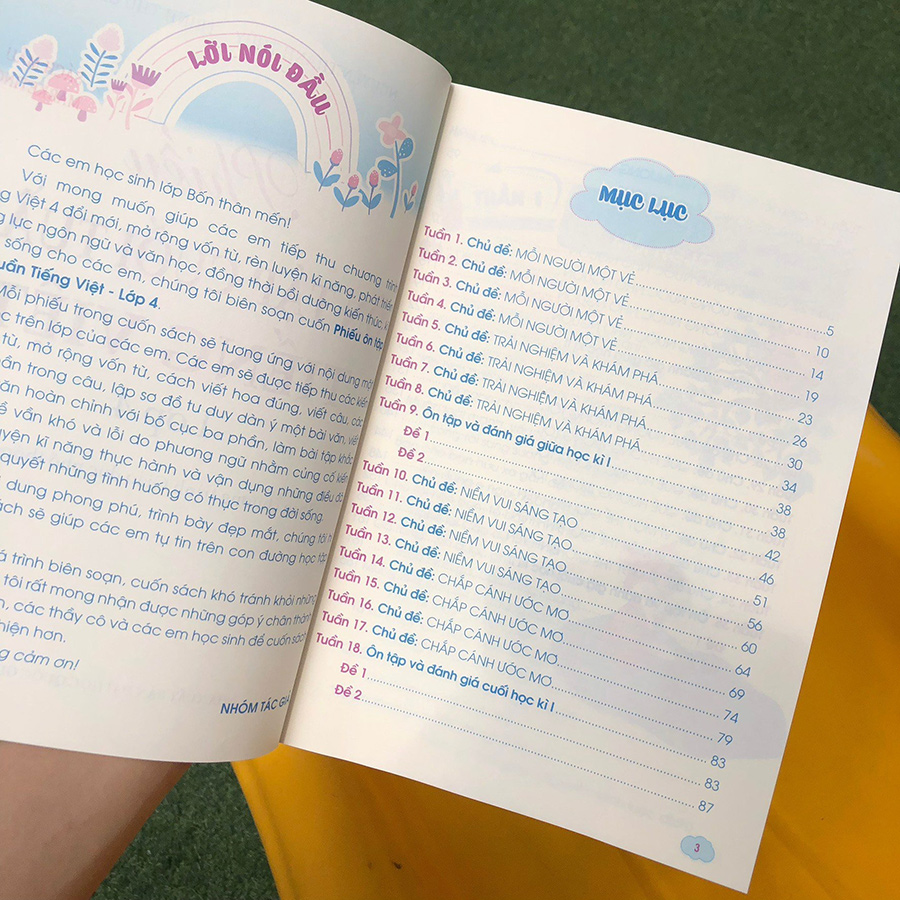 LỜI NÓI ĐẦU
Các em học sinh lớp Bốn thân mến!
Với mong muốn giúp các em tiếp thu chương trình
Việt 4 đổi mới, mở rộng vốn từ, rèn luyện kĩ năng, phát triển
lực ngôn ngữ và văn học, đồng thời bồi dưỡng kiến thức,
sống cho các em, chúng tôi biên soạn cuốn Phiếu ôn tập
Tiếng Việt - Lớp 4.
Mỗi phiếu trong cuốn sách sẽ tương ứng với nội dung
trên lớp của các em. Các em sẽ được tiếp thu các kiến
từ, mở rộng vốn từ, cách viết hoa đúng, viết câu, các
trong câu, lập sơ đồ tư duy dàn ý một bài văn, viết
hoàn chỉnh với bố cục ba phần, làm bài tập khắc
vần khó và lỗi do phương ngữ nhằm củng cố kiến
kĩ năng thực hành và vận dụng những điều đó
quyết những tình huống có thực trong đời sống.
dung phong phú, trình bày đẹp mắt, chúng tôi
sẽ giúp các em tự tin trên con đường học tập
trình biên soạn, cuốn sách khó tránh khỏi những
tôi rất mong nhận được những góp ý chân thành
các thầy cô và các em học sinh để cuốn sách
hơn.
cảm ơn!
NHÓM TÁC GIẢ
MỤC LỤC
Tuần 1. Chủ đề: MỖI NGƯỜI MỘT VẺ 5
Tuần 2. Chủ đề: MỖI NGƯỜI MỘT VẺ 10
Tuần 3. Chủ đề: MỖI NGƯỜI MỘT VẺ 14
Tuần 4. Chủ đề: MỖI NGƯỜI MỘT VẺ 19
Tuần 5. Chủ đề: TRẢI NGHIỆM VÀ KHÁM PHÁ 23
Tuần 6. Chủ đề: TRẢI NGHIỆM VÀ KHÁM PHÁ 26
Tuần 7. Chủ đề: TRẢI NGHIỆM VÀ KHÁM PHÁ 30
Tuần 8. Chủ đề: TRẢI NGHIỆM VÀ KHÁM PHÁ 34
Tuần 9. Ôn tập và đánh giá giữa học kì I 38
Đề 1 38
Đề 2 42
Tuần 10. Chủ đề: NIỀM VUI SÁNG TẠO 46
Tuần 11. Chủ đề: NIỀM VUI SÁNG TẠO 51
Tuần 12. Chủ đề: NIỀM VUI SÁNG TẠO 56
Tuần 13. Chủ đề: NIỀM VUI SÁNG TẠO 60
Tuần 14. Chủ đề: CHẮP CÁNH ƯỚC MƠ 64
Tuần 15. Chủ đề: CHẮP CÁNH ƯỚC MƠ 69
Tuần 16. Chủ đề: CHẮP CÁNH ƯỚC MƠ 74
Tuần 17. Chủ đề: CHẮP CÁNH ƯỚC MƠ 79
Tuần 18. Ôn tập và đánh giá cuối học kì I 83
Đề 1 83
Đề 2 87
3